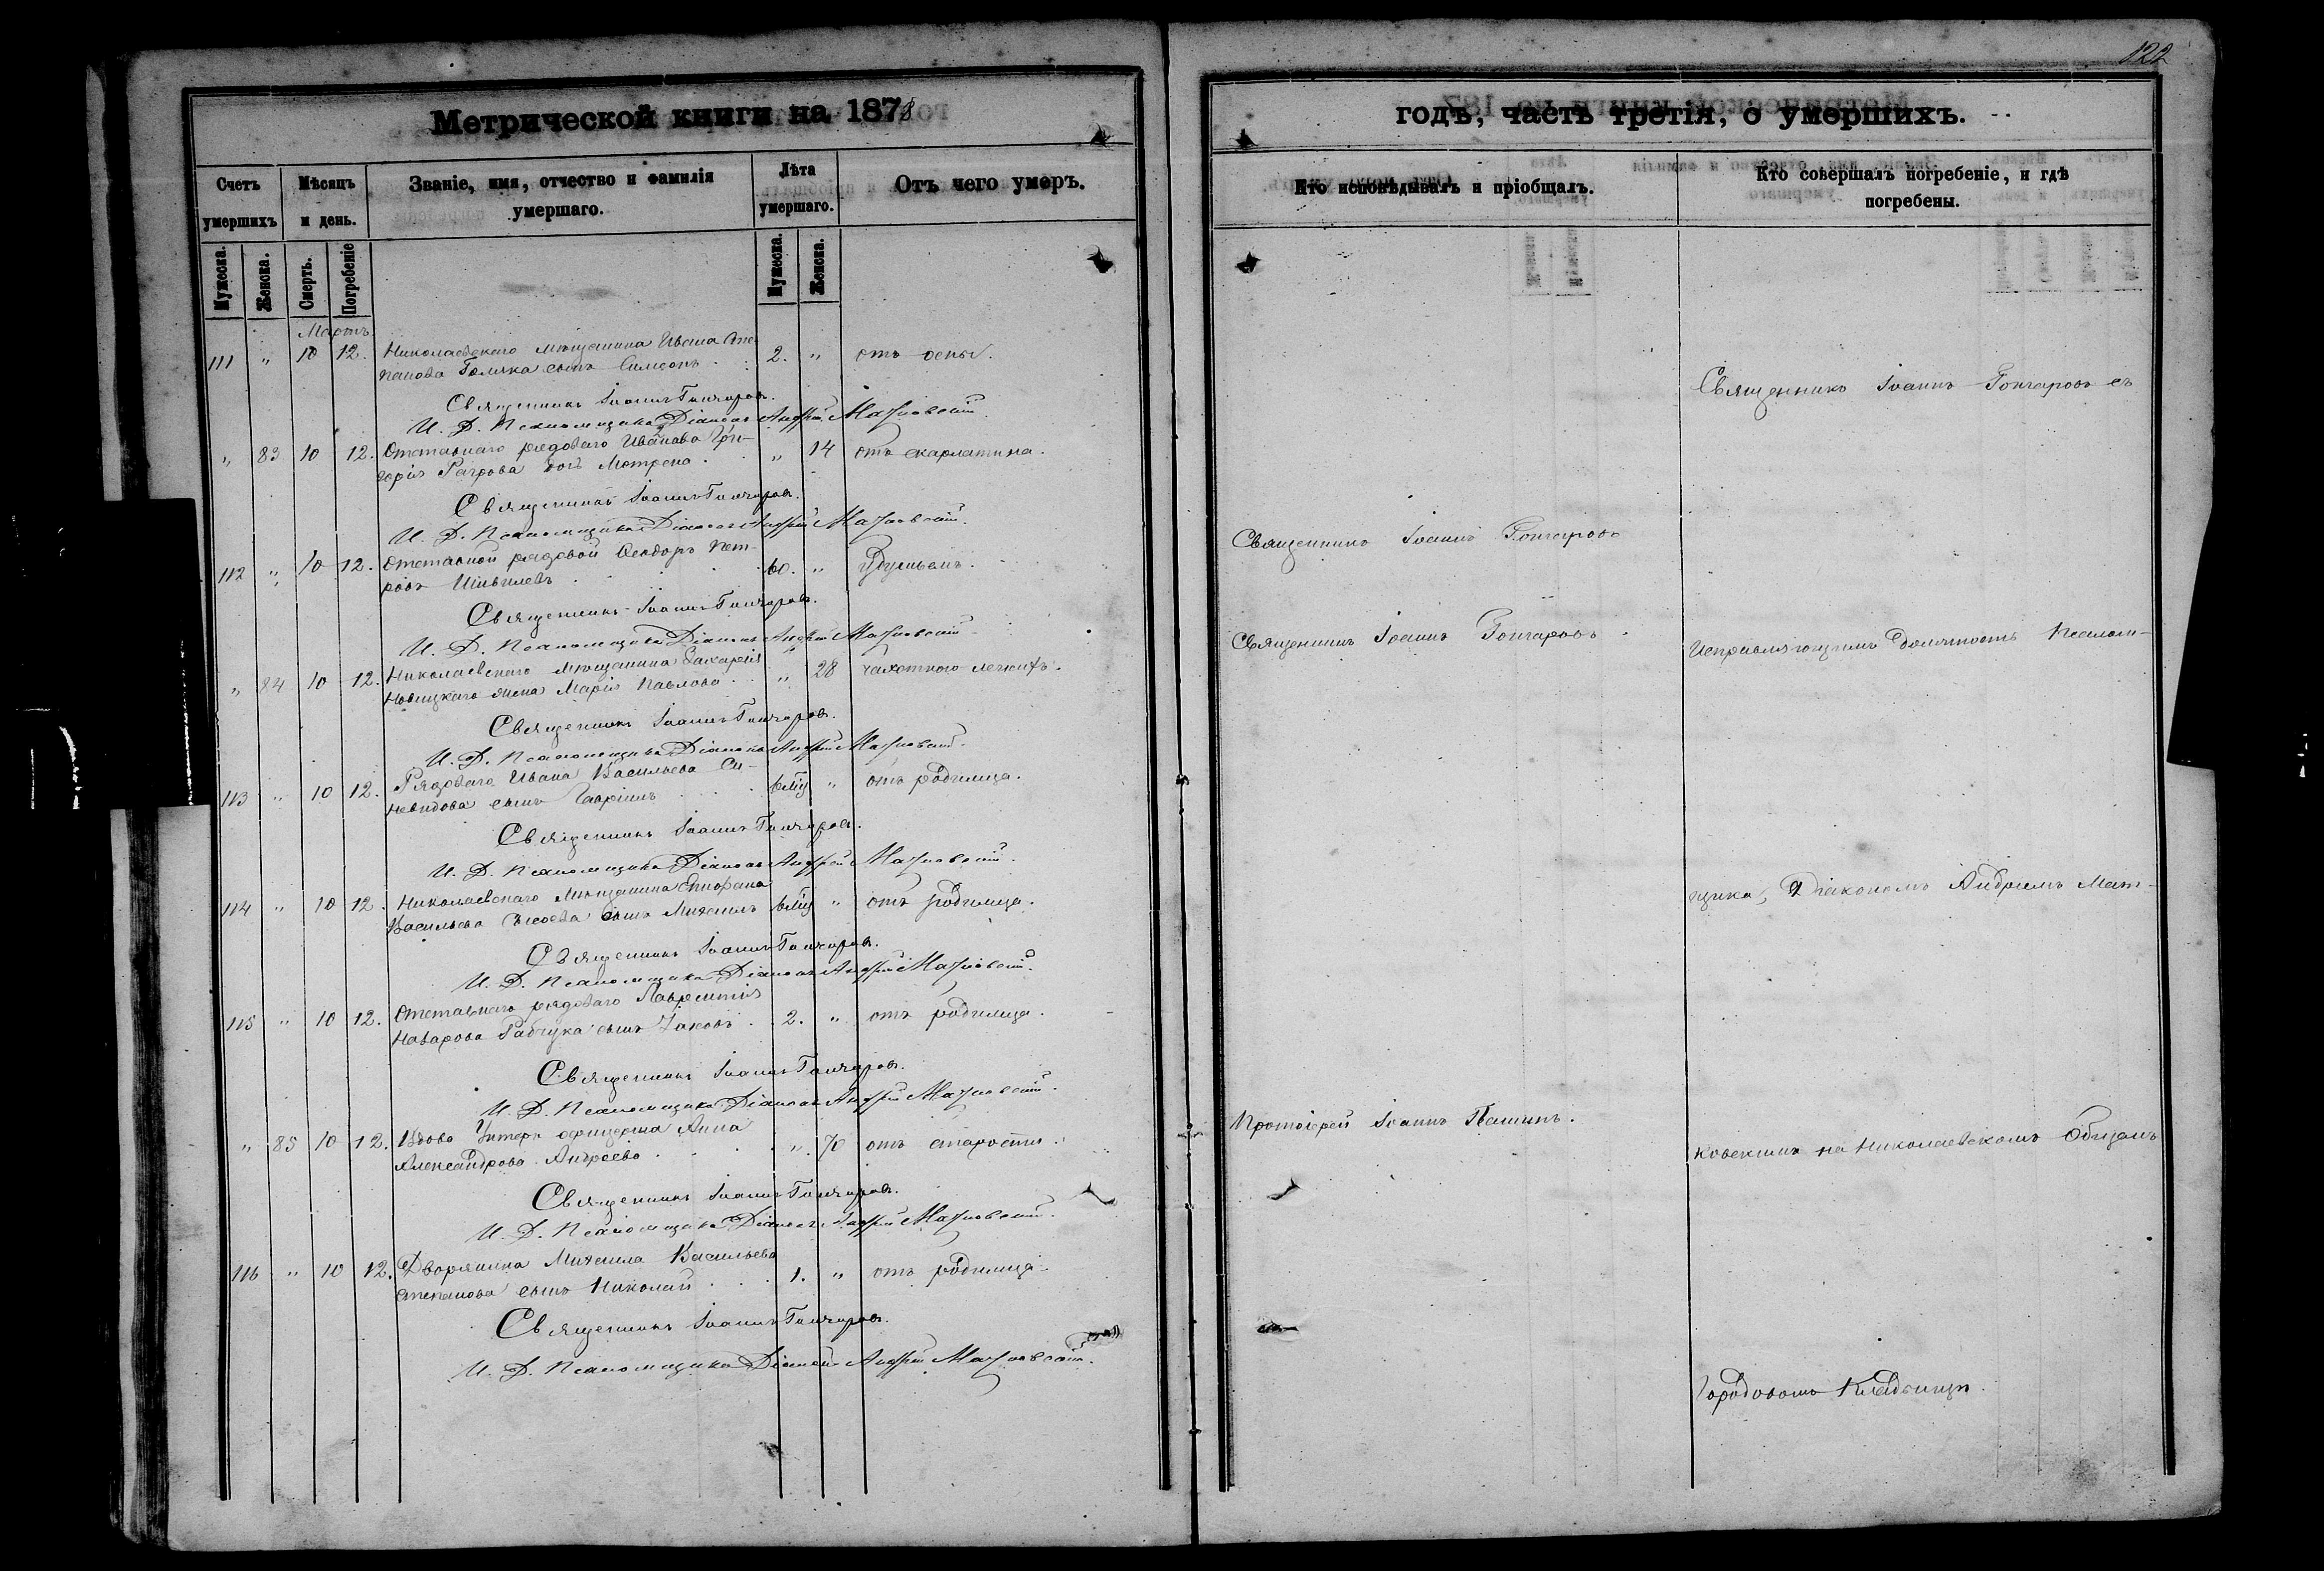 122
Метрической книги на 1878
годъ, часть третія, о умершихъ.
Счетъ умершихъ
Мѣсяцъ и день.
Званіе, имя, отчество и фамилія умершаго.
Лѣта умершаго.
Отъ чего умеръ.
Кто исповѣдывалъ и пріобщалъ.
Кто совершалъ погребеніе, и гдѣ погребены.
Мужеска. Женска. Смерть. Погребеніе Мужеска. Женска.
Мартъ
111 " 10 12. Николаевскаго мѣщанина Ивана Сте-
панова сынъ Симеонъ 2. " отъ оспы.
Священникъ Іоаннъ Гончаровъ.
И. Д. Псаломщика Діаконъ Андрей
Священникъ Іоаннъ Гончаровъ съ
" 83 10 12. Отставнаго рядоваго Иванова Гри-
горія дочь Матрена " 14 отъ скарлатина.
Священникъ Іоаннъ Гончаровъ.
И. Д. Псаломщика Діаконъ Андрей
112 " 10 12. Отставной рядовой Ѳеодоръ Пет-
ровъ 60. "
Священникъ Іоаннъ Гончаровъ
Священникъ Іоаннъ Гончаровъ.
И. Д. Псаломщика Діаконъ Андрей
" 84 10 12. Николаевскаго мѣщанина Захарія
Новицкаго жена Марія Павлова " 28 чахоткою легкихъ.
Священникъ Іоаннъ Гончаровъ.
Исправляющимъ должность Псалом-
Священникъ Іоаннъ Гончаровъ.
И. Д. Псаломщика Діаконъ Андрей
113 " 10 12. Рядоваго Ивана Васильева Си-
невидова сынъ Гавріилъ " отъ родимца.
Священникъ Іоаннъ Гончаровъ.
И. Д. Псаломщика Діаконъ Андрей
114 " 10 12. Николаевскаго Мѣщанина
Васильева Сысоева сынъ Михаилъ " отъ родимца.
щика, Діакономъ Андреемъ Мат-
Священникъ Іоаннъ Гончаровъ.
И. Д. Псаломщика Діаконъ Андрей
115 " 10 12. Отставнаго рядоваго Лаврентія
сынъ Іаковъ. 2. " отъ родимца.
Священникъ Іоаннъ Гончаровъ.
И. Д. Псаломщика Діаконъ Андрей
" 85 10 12. Вдова Унтеръ офицерша Анна
Александрова Андреева " 70 отъ старости.
Протоіерей Іоаннъ
ковскимъ на Николаевскомъ Общемъ
Священникъ Іоаннъ Гончаровъ.
И. Д. Псаломщика Діаконъ Андрей
116 " 10 12. Дворянина Михаила Васильева
Степанова сынъ Николай 1. " отъ родимца.
Священникъ Іоаннъ Гончаровъ.
И. Д. Псаломщика Діаконъ Андрей
Городовомъ Кладбищѣ.